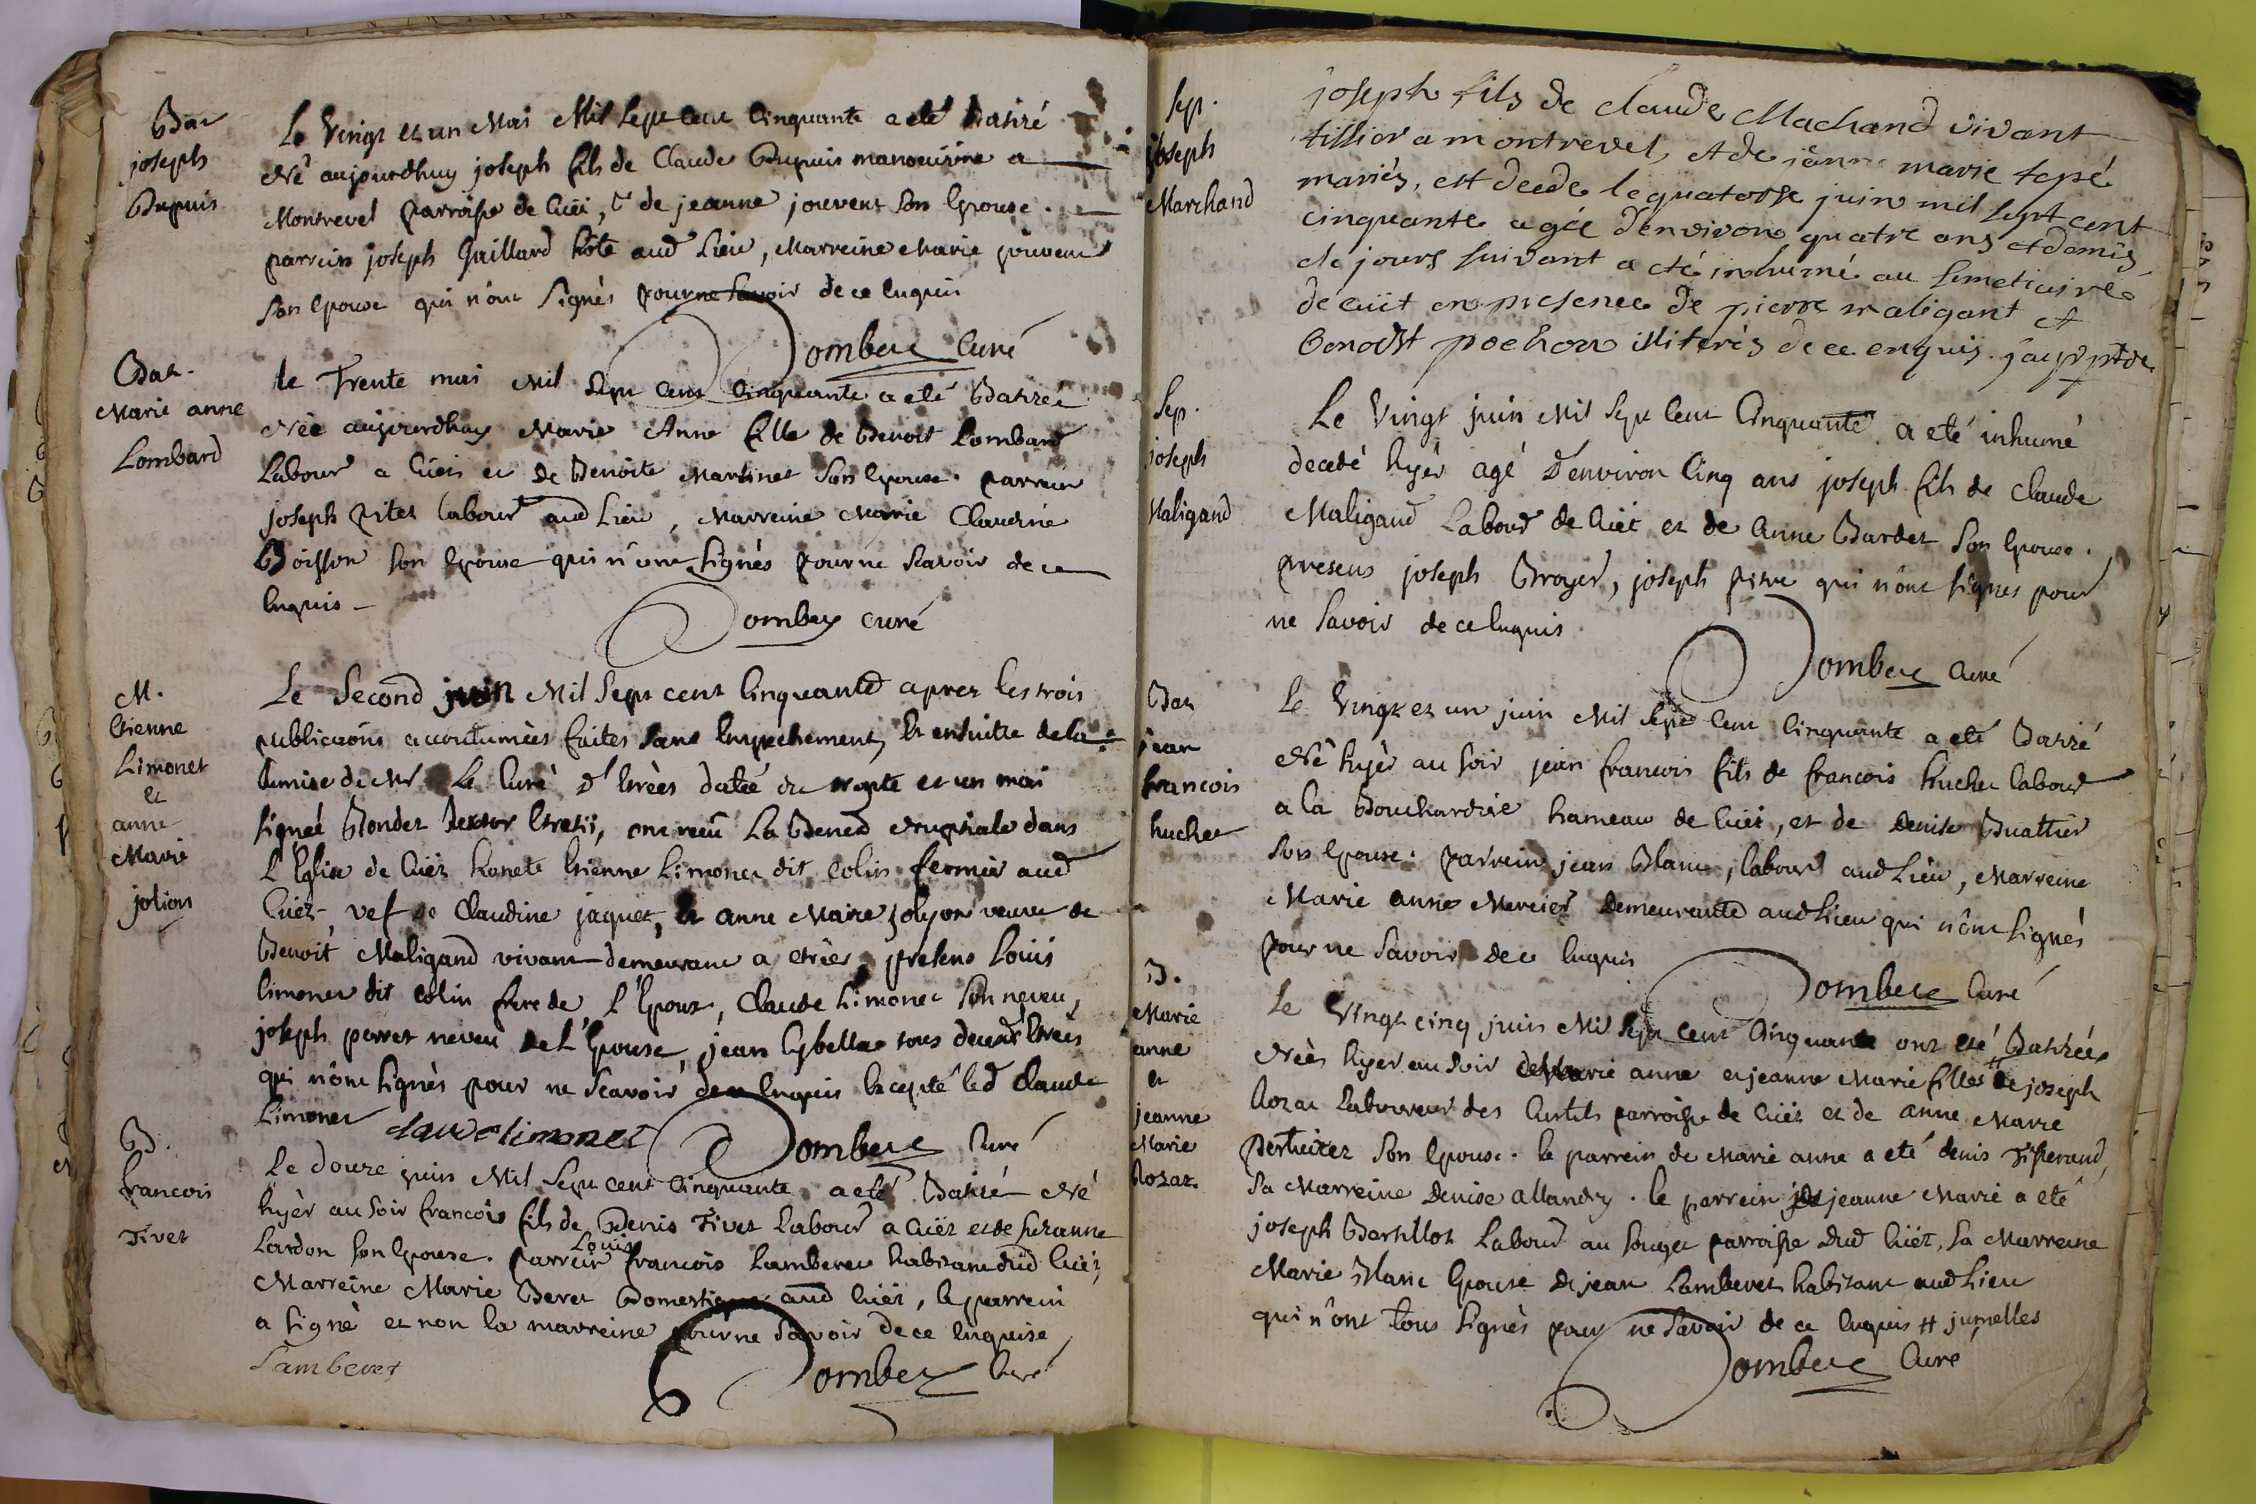 Bat
joseph
Dupuis
Le Vingt et un Mai Mil Sept Cent Cinquante a eté Batizé
Né aujourdhuy joseph fils de Claude Dupuis manoeuvre a
Montrevel parroisse de Cüet, & de jeanne jouvent son Epouse.
parrein joseph Gaillard hôte aud Lieu, Marreine Marie jouvent
son Epouse qui n'ont Signés pour ne Savoir de ce Enquis
Dombey Curé
Bat.
Marie anne
Lombard
le Trente mai Mil Sept Cent Cinquante a eté Batizée
Née aujourdhuy Marie Anne fille de Benoit Lombard
Labour a Cüet et de Benoite Martinet Son Epouse. parrein
joseph pitet labour aud Lieu, Marreine Marie Claudine
Boisson son Epouse qui n'ont Signés pour ne Scavoir de ce
Enquis
Dombey curé
M.
Etienne
Limonet
et
anne
Marie
jolion
Le Second juin Mil Sept cent Cinquante apres les trois
publications accoutumées faites sans Empechement, et ensuitte de la
Remise de Mr Le Curé d'Etrées datée du trente et un mai
Signée Bondet Rector Etresii, ont reçu La Bened Nuptiale dans
L'Eglise de Cüet honete Etienne Limonet dit Colin fermier aud
Cüet vef de Claudine jaquet, et anne Marie jolyon veuve de
Benoit Maligand vivant demeurant a etrées, presens Louis
limonet dit Colin frere de L'Epoux, Claude Limonet son neveu,
joseph perret neveu de L'Epouse, jean Gybellet tous deux d'Etrées
qui n'ont signés pour ne Scavoir de ce Enquis Excepté led Claude
Limonet claudelimonet Dombey Curé
B.
francois
Tivet
Le douze juin Mil Sept cent Cinquante a eté Batizé Né
hyèr au Soir francois fils de Denis Tivet Labour a Cüet et de suzanne
Lardon son Epouse. parrein Louis francois Lamberet habitant dud Cüet,
Marreine Marie Beret Domestique aud Cüet, le parrein
a signé et non la marreine pour ne Savoir de ce Enquise
Lamberet
Dombey Curé
Sep.
joseph
Marchand
joseph fils de claude Machand vivant
tissier a montrevel, et de jânne marie
mariés, est decede le quatorse juin mil sept cent
cinquante agée d'environ quatre ans et demis
et le jours suivant a eté inhumé au simetierre
de cüit en presence de pierre maligant et
Benoist pochon illiterés de ce enquis.
Sep.
joseph
Maligand
Le Vingt juin Mil Sept Cent Cinquante a eté inhumé
decedé hyèr agé d'environ Cinq ans joseph fils de Claude
Maligand Labour de Cüet et de Anne Bardet Son Epouse.
presens joseph Broyer, joseph pitre qui n'ont signés pour
ne Savoir de ce Enquis.
Dombey Curé
Bat
jean
francois
huchet
Le Vingt et un juin Mil Sept Cent Cinquante a eté Batizé
Né hyèr au soir jean francois fils de francois huchet labour
a la Bouchardire hameau de Cüet, et de Denise Buattier
Son Epouse. parrein jean Blanc, labour aud Lieu, Marreine
Marie anne Mercier Demeurante aud Lieu qui n'ont signés
pour ne Savoir de ce Enquis
Dombey Curé
B.
Marie
anne
et
jeanne
Marie
Rozat.
Le Vingt cinq juin Mil Sept Cent Cinquante ont eté Batizées
Nées hyer au Soir Marie anne et jeanne Marie filles # de joseph
Rozat Laboureur des Curtils parroisse de Cüet et de anne Marie
pertuizet son Epouse. le parrein de Marie anne a eté denis Tisserand,
sa Marreine Denise allandry. le parrein de jeanne Marie a eté
joseph Bertillot Labour au Souget parroisse dud Cüet, Sa Marreine
Marie Blanc Epouse de jean Lamberet habitant aud Lieu
qui n'ont tous Signés pour ne Savoir de ce Enquis # jumelles
Dombey Curé